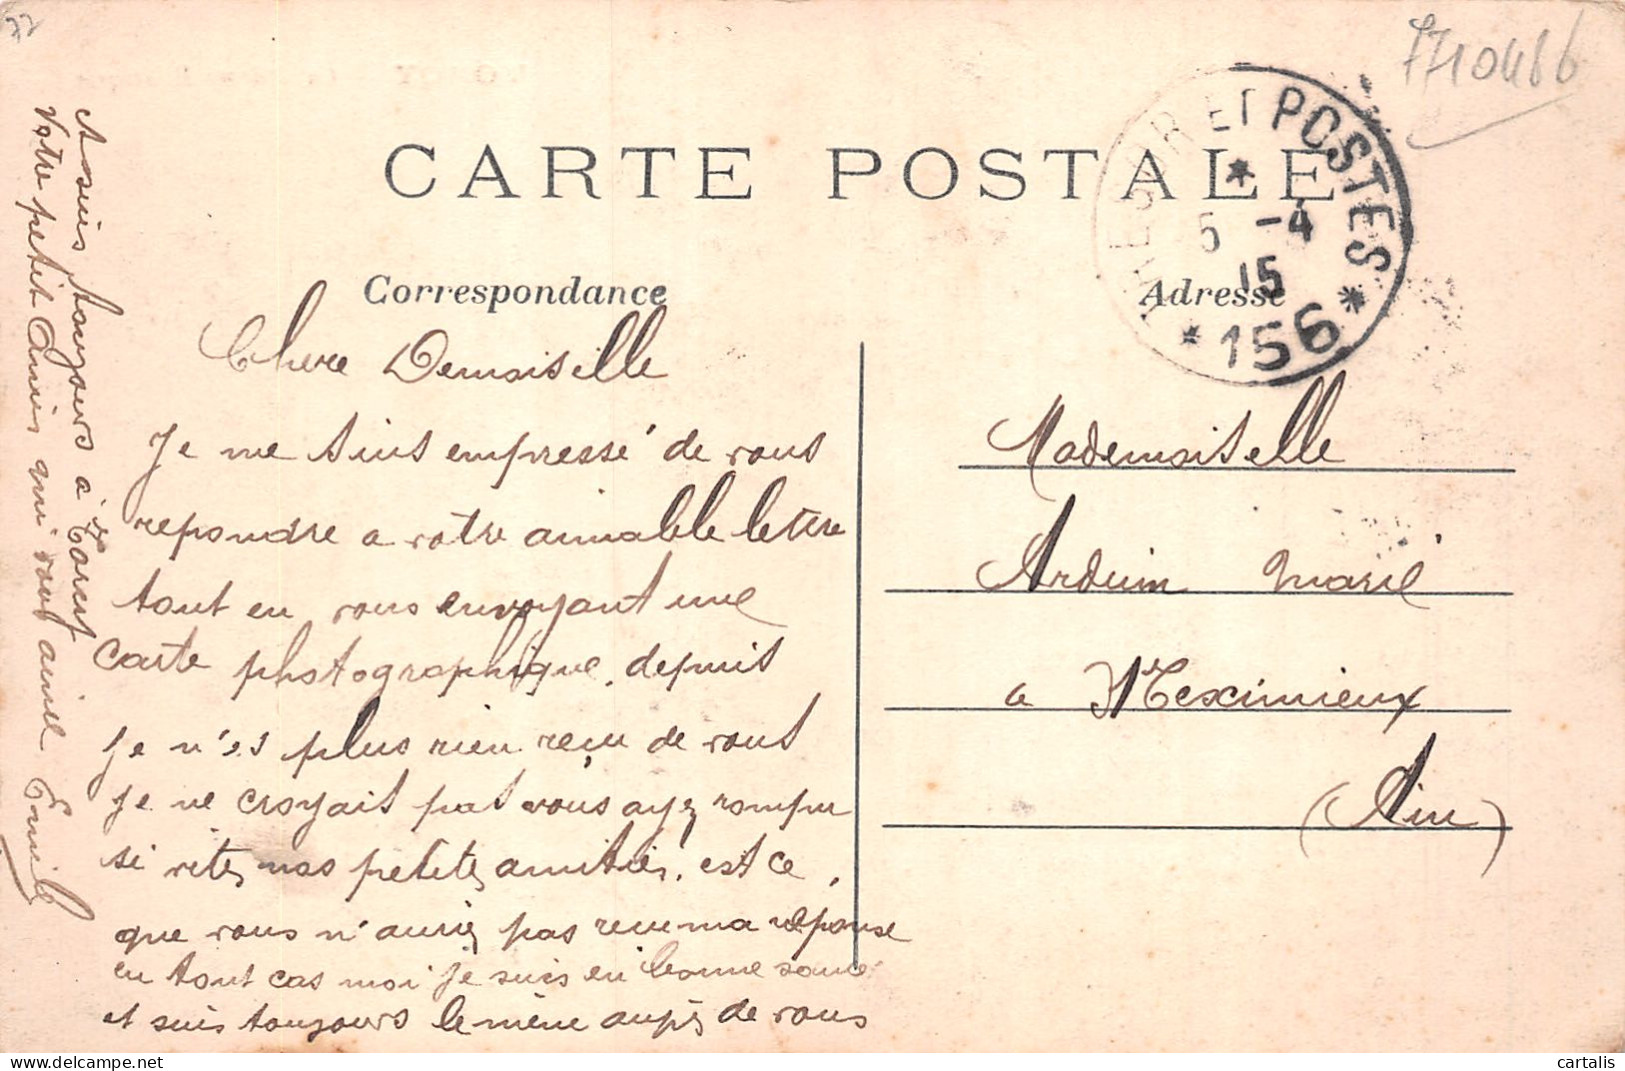 77
7710466
CARTE POSTALE
TRESOR ET POSTES
5 -4
15
* 156 *
Correspondance
Adresse
Chere Demoiselle
Je me suis empressé de vous
repondre a votre aimable lettre
tout en vous envoyant une
carte photographique. depuis
je n'es plus rien reçu de vous
je ne croyait pas vous ayez rompu
si vites nos petites amitiés. est ce
que vous n'auriez pas recu ma réponse
en tout cas moi je suis en bonne santé
et suis toujours le même auprès de vous
A suis toujours à
Votre petit Amis qui vous aime Emile
Mademoiselle
Arduin Marie
a Meximieux
(Ain)
cartalis